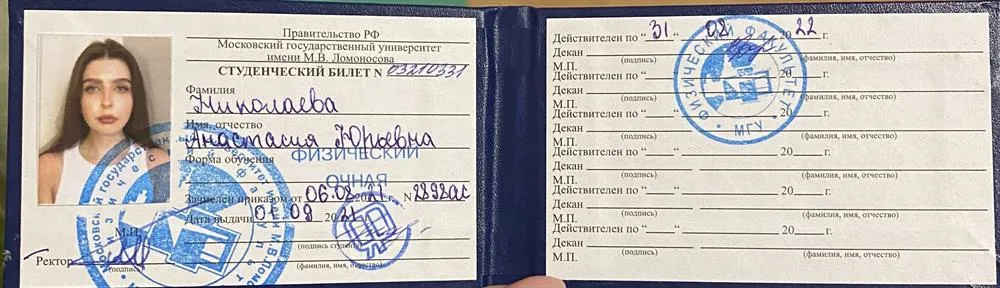 Правительство РФ
Московский государственный университет
имени М.В. Ломоносова
СТУДЕНЧЕСКИЙ БИЛЕТ N 03210331
Фамилия
Николаева
Имя, отчество
Анастасия Юрьевна
Форма обучения
ФИЗИЧЕСКИЙ
ОЧНАЯ
Зачислен приказом от 06.08 2021 г. N
Дата выдачи 01.09 2021
М.П.
(подпись студента)
Ректор
(подпись)
(фамилия, имя, отчество)
Действителен по “31” 08 2022 г.
Декан
(подпись)
(фамилия, имя, отчество)
М.П.
Действителен по “ ” 20 г.
Декан
(подпись)
(фамилия, имя, отчество)
М.П.
Действителен по “ ” 20 г.
Декан
(подпись)
(фамилия, имя, отчество)
М.П.
Действителен по “ ” 20 г.
Декан
(подпись)
(фамилия, имя, отчество)
М.П.
Действителен по “ ” 20 г.
Декан
(подпись)
(фамилия, имя, отчество)
М.П.
Действителен по “ ” 20 г.
Декан
(подпись)
(фамилия, имя, отчество)
М.П.
ФИЗИЧЕСКИЙ ФАКУЛЬТЕТ
МГУ